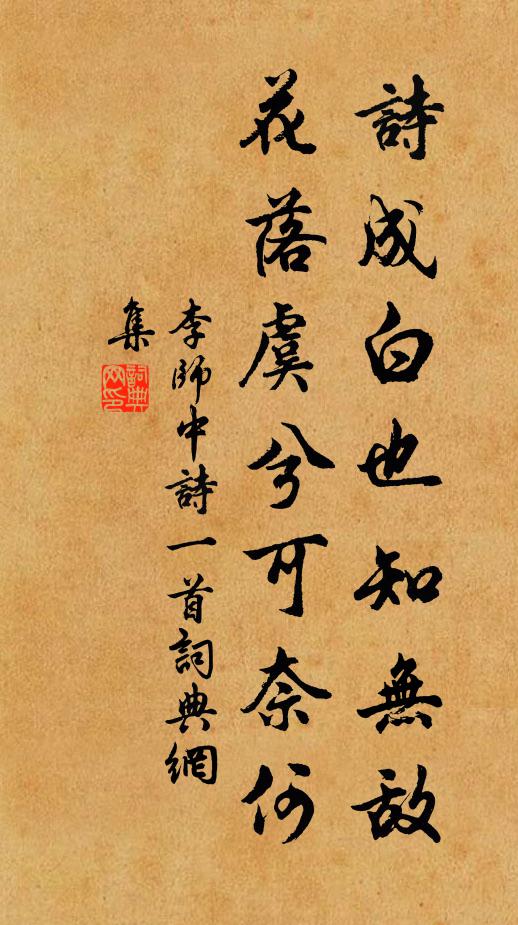 詩成白也知無敌
花落虞兮可奈何
李師中詩一首詞典網
集
詞典
网印